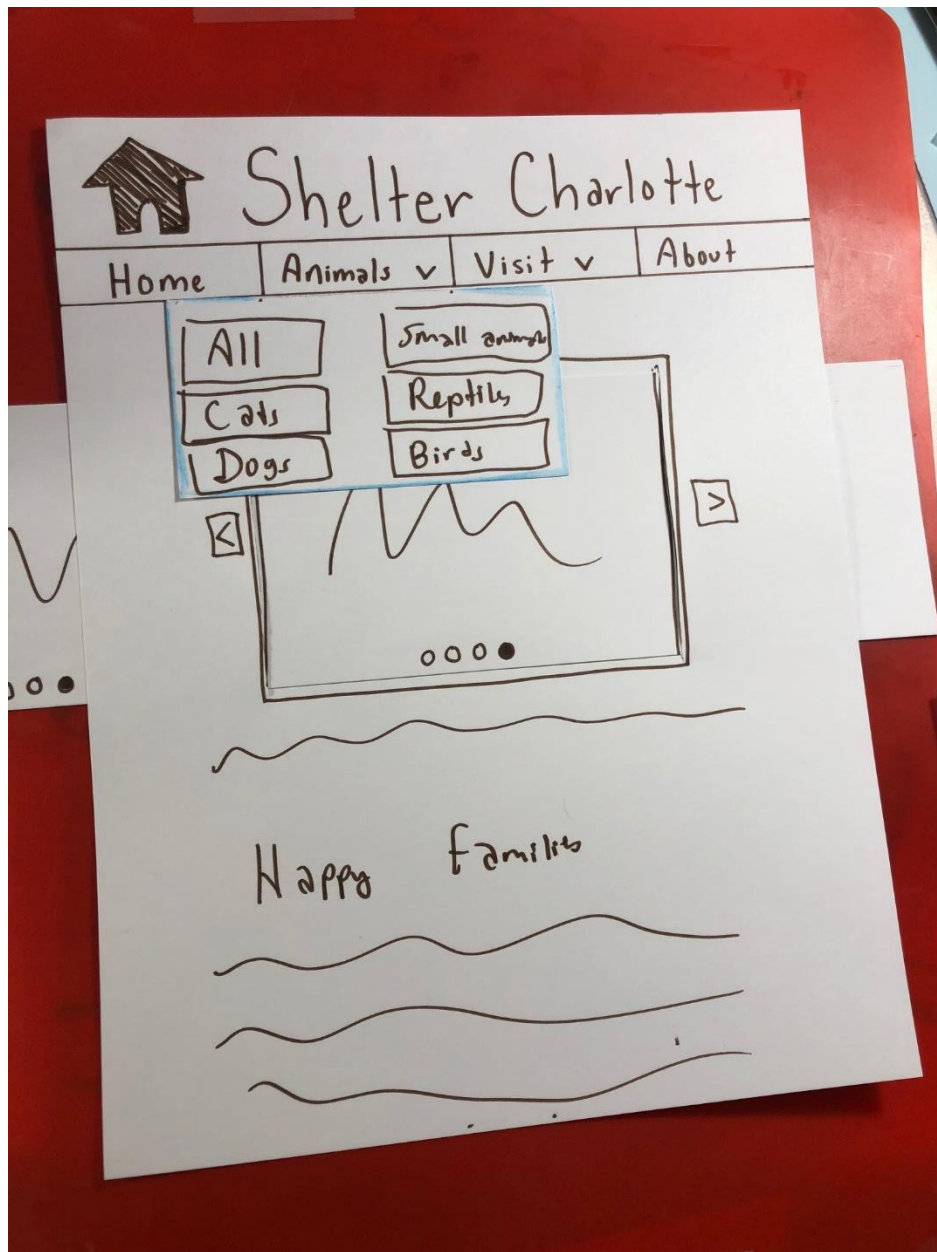 Shelter Charlotte
Home Animals v Visit v About
All Small animals
Cats Reptiles
Dogs Birds
< >
Happy Families